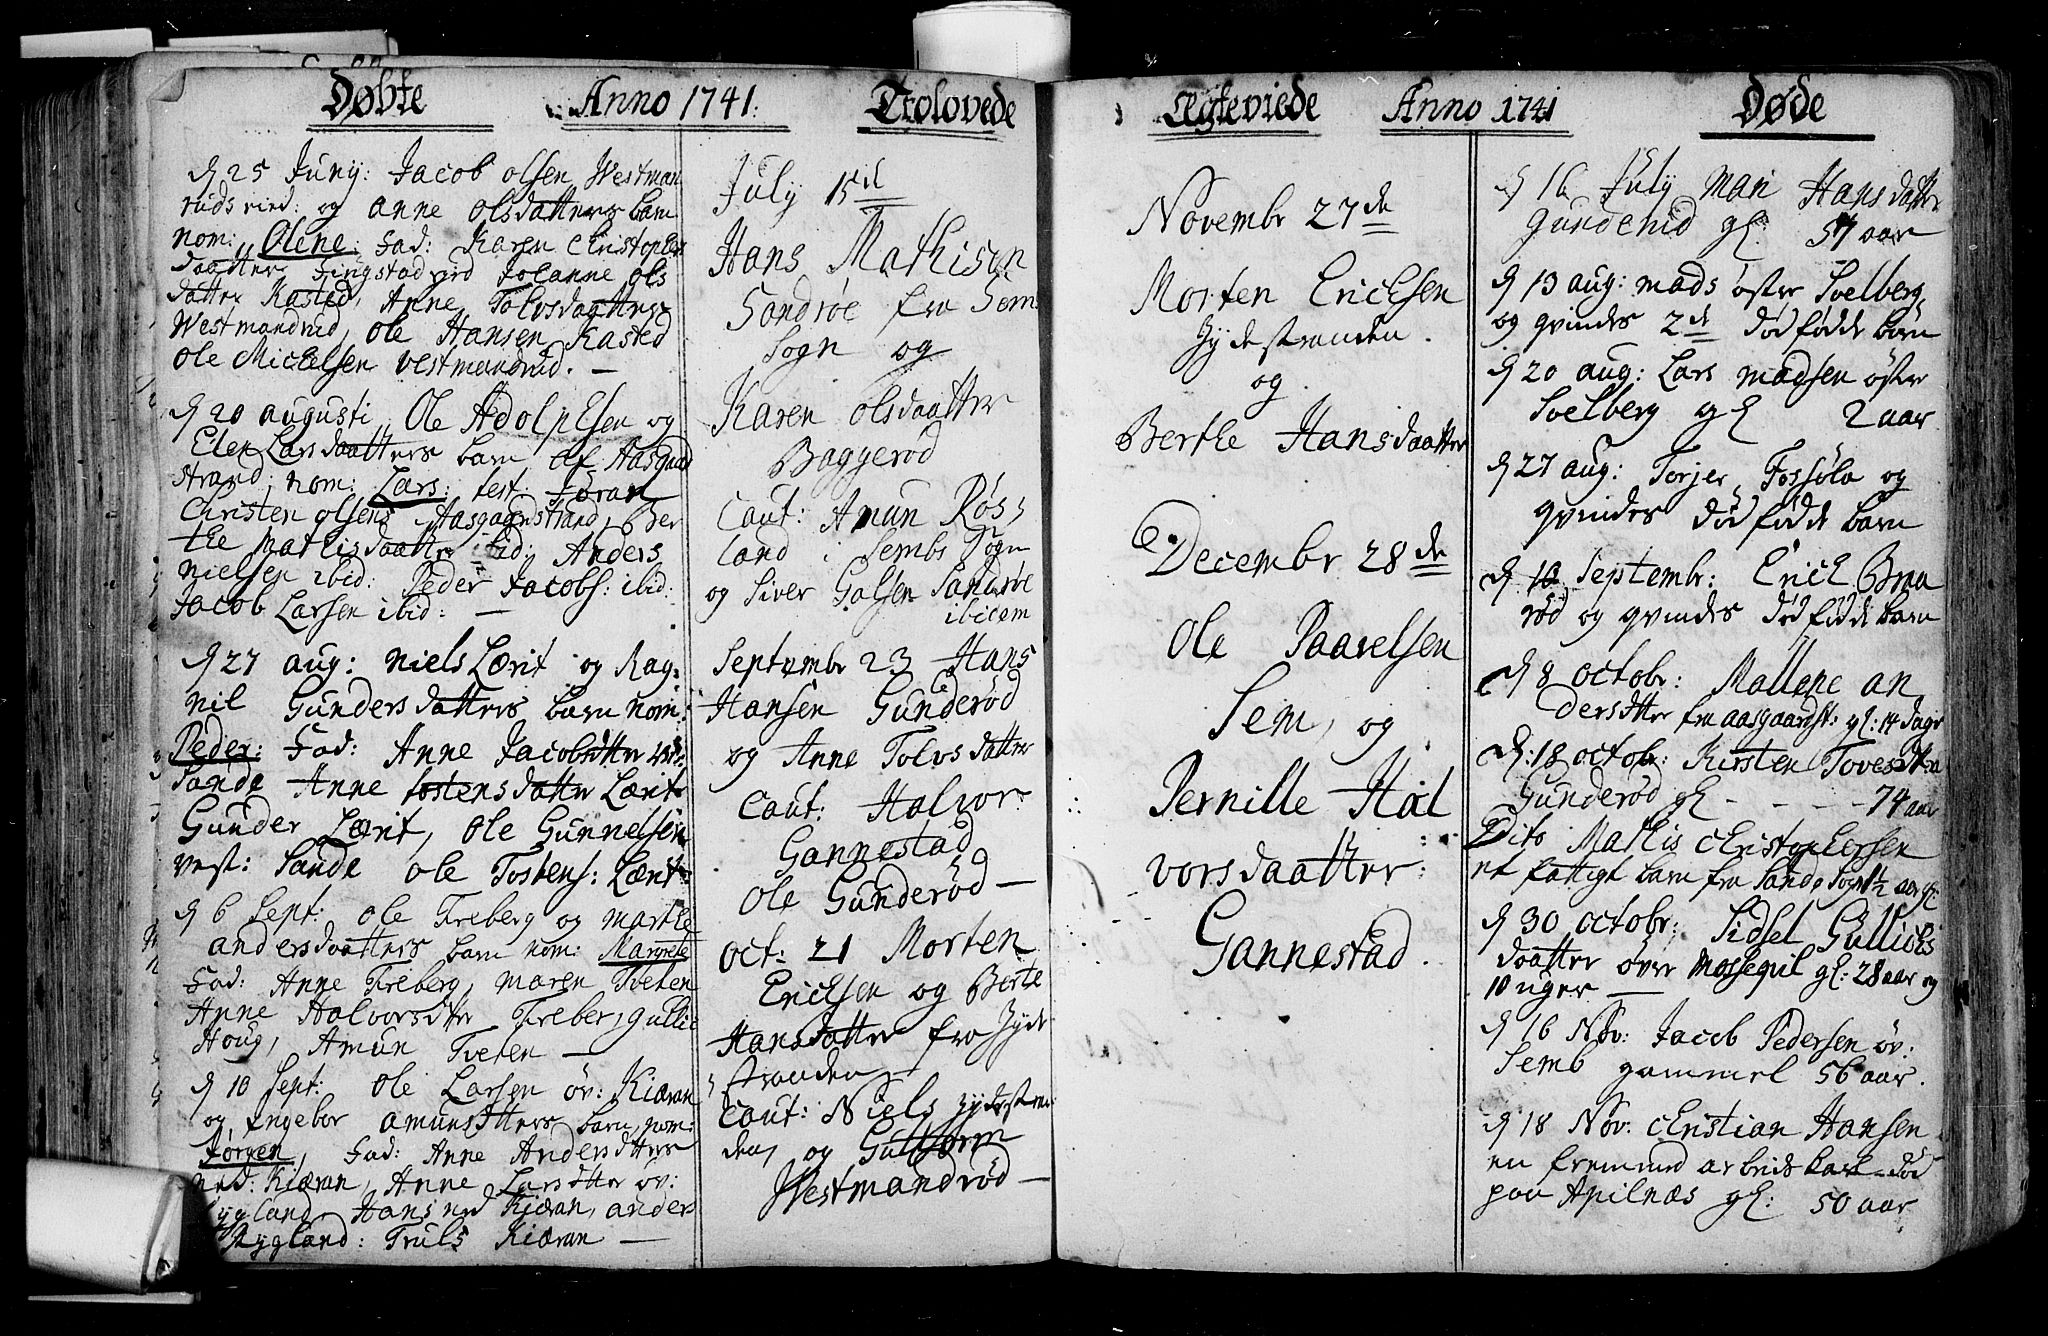 Døbte
Anno 1741.
d 25 Juny: Jacob olsen Westman
ruds eied: og anne olsdatters barn
nom: Olene: Fad: Karen Christophers
daatter, Jingstad, Johanne ols
datter Kasted, Anne Tolvsdaatter
Westmandrud, ole Hansen Kasted
ole Michelsen vestmandrud. —
d 20 augusti Ole Adolphsen og
Elen Larsdaatters barn af Aasgaard
strand, nom: Lars: test: Jøran
Christen olsens Aasgaardstrand, Ber
the Mathisdaatter ibid: Anders
Nielsen ibid: Peder Jacobs: ibid:
Jacob Larsen ibid: —
d 27 aug: niels Lærit og Rag-
nil Gundersdatters barn nom:
Peder: Fad: Anne Jacobsdtter vest:
Sande Anne tostensdatter Lærit
Gunder Lærit, ole Gunnelsen
vest: Sande ole Tostens: Lærit
d 6 Sept: ole Freberg og marthe
andersdaatters barn nom: Margrete
Fad: Anne Freberg, maren Tveten
Anne Halvorsdtter Freber, Gullic
Houg, Amun Tveten —
d 10 Sept: ole Larsen öv: Kiæran
og Engebor amunsdtters barn, nom:
Jørgen, Fad: Anne Andersdtters
ned: Kiæran, Anne Larsdtter öv:
Rygland, Hans ned Kiæran, anders
Rygland: Truls Kiæran —
Trolovede
July 15de
Hans Mathisen
Sandrøe fra Sems
Sogn og
Karen olsdaatter
Baggerød
Caut: Amun Røs,
land i Sembs Sogn
og Siver Galsen Sandrøe
ibidem
Septembr 23 Hans
Hansen Gunderød
og Anne Tolvsdatter
Caut: Halvor
Gannestad
Ole Gunderød —
oct: 21 Morten
Ericksen og Berte
Hansdatter fra Jyde
stranden
Caut: Niels Jydestran
den, og Guttorm
Westmandrød —
Ægteviede
Anno 1741
Novembr 27de
Morten Ericksen
Jydestranden.
og
Berthe Hansdaatter
Decembr 28de
Ole Paavelsen
Sem, og
Pernille Hal
vorsdaatter:
Gannestad.
Døde
d 16 July Mari Hansdatter
Gunderud gl: 57 aar
d 13 aug: mads öster Svelberg
og qvindes 2de dødfødde barn
d 20 aug: Lars madsen öster
Svelberg gl 2 aar
d 27 aug: Torjer Fossøla og
qvindes dødfødde barn
d 10 Septembr: Erich Bma
rød og qvindes dødfødde barn
d 8 octobr: Mallene an
dersdtter fra aasgaardst: gl: 14 dage
d: 18 octobr: Kirsten Tovesdtter
Gunderød gl - - - - 74 aar
Dito Mathis Christophersen
et fattigt barn fra Sande Sogn 1½ aar gl:
d 30 octobr: Sidsel Gullichs
daatter över Mossequil gl: 28 aar og
10 uger —
d 16 Nov: Jacob Pedersen öv:
Semb gammel 56 aar.
d 18 Nov: Christian Hansen
en fremmed arbeids karl død
paa Apilnæs gl: 50 aar